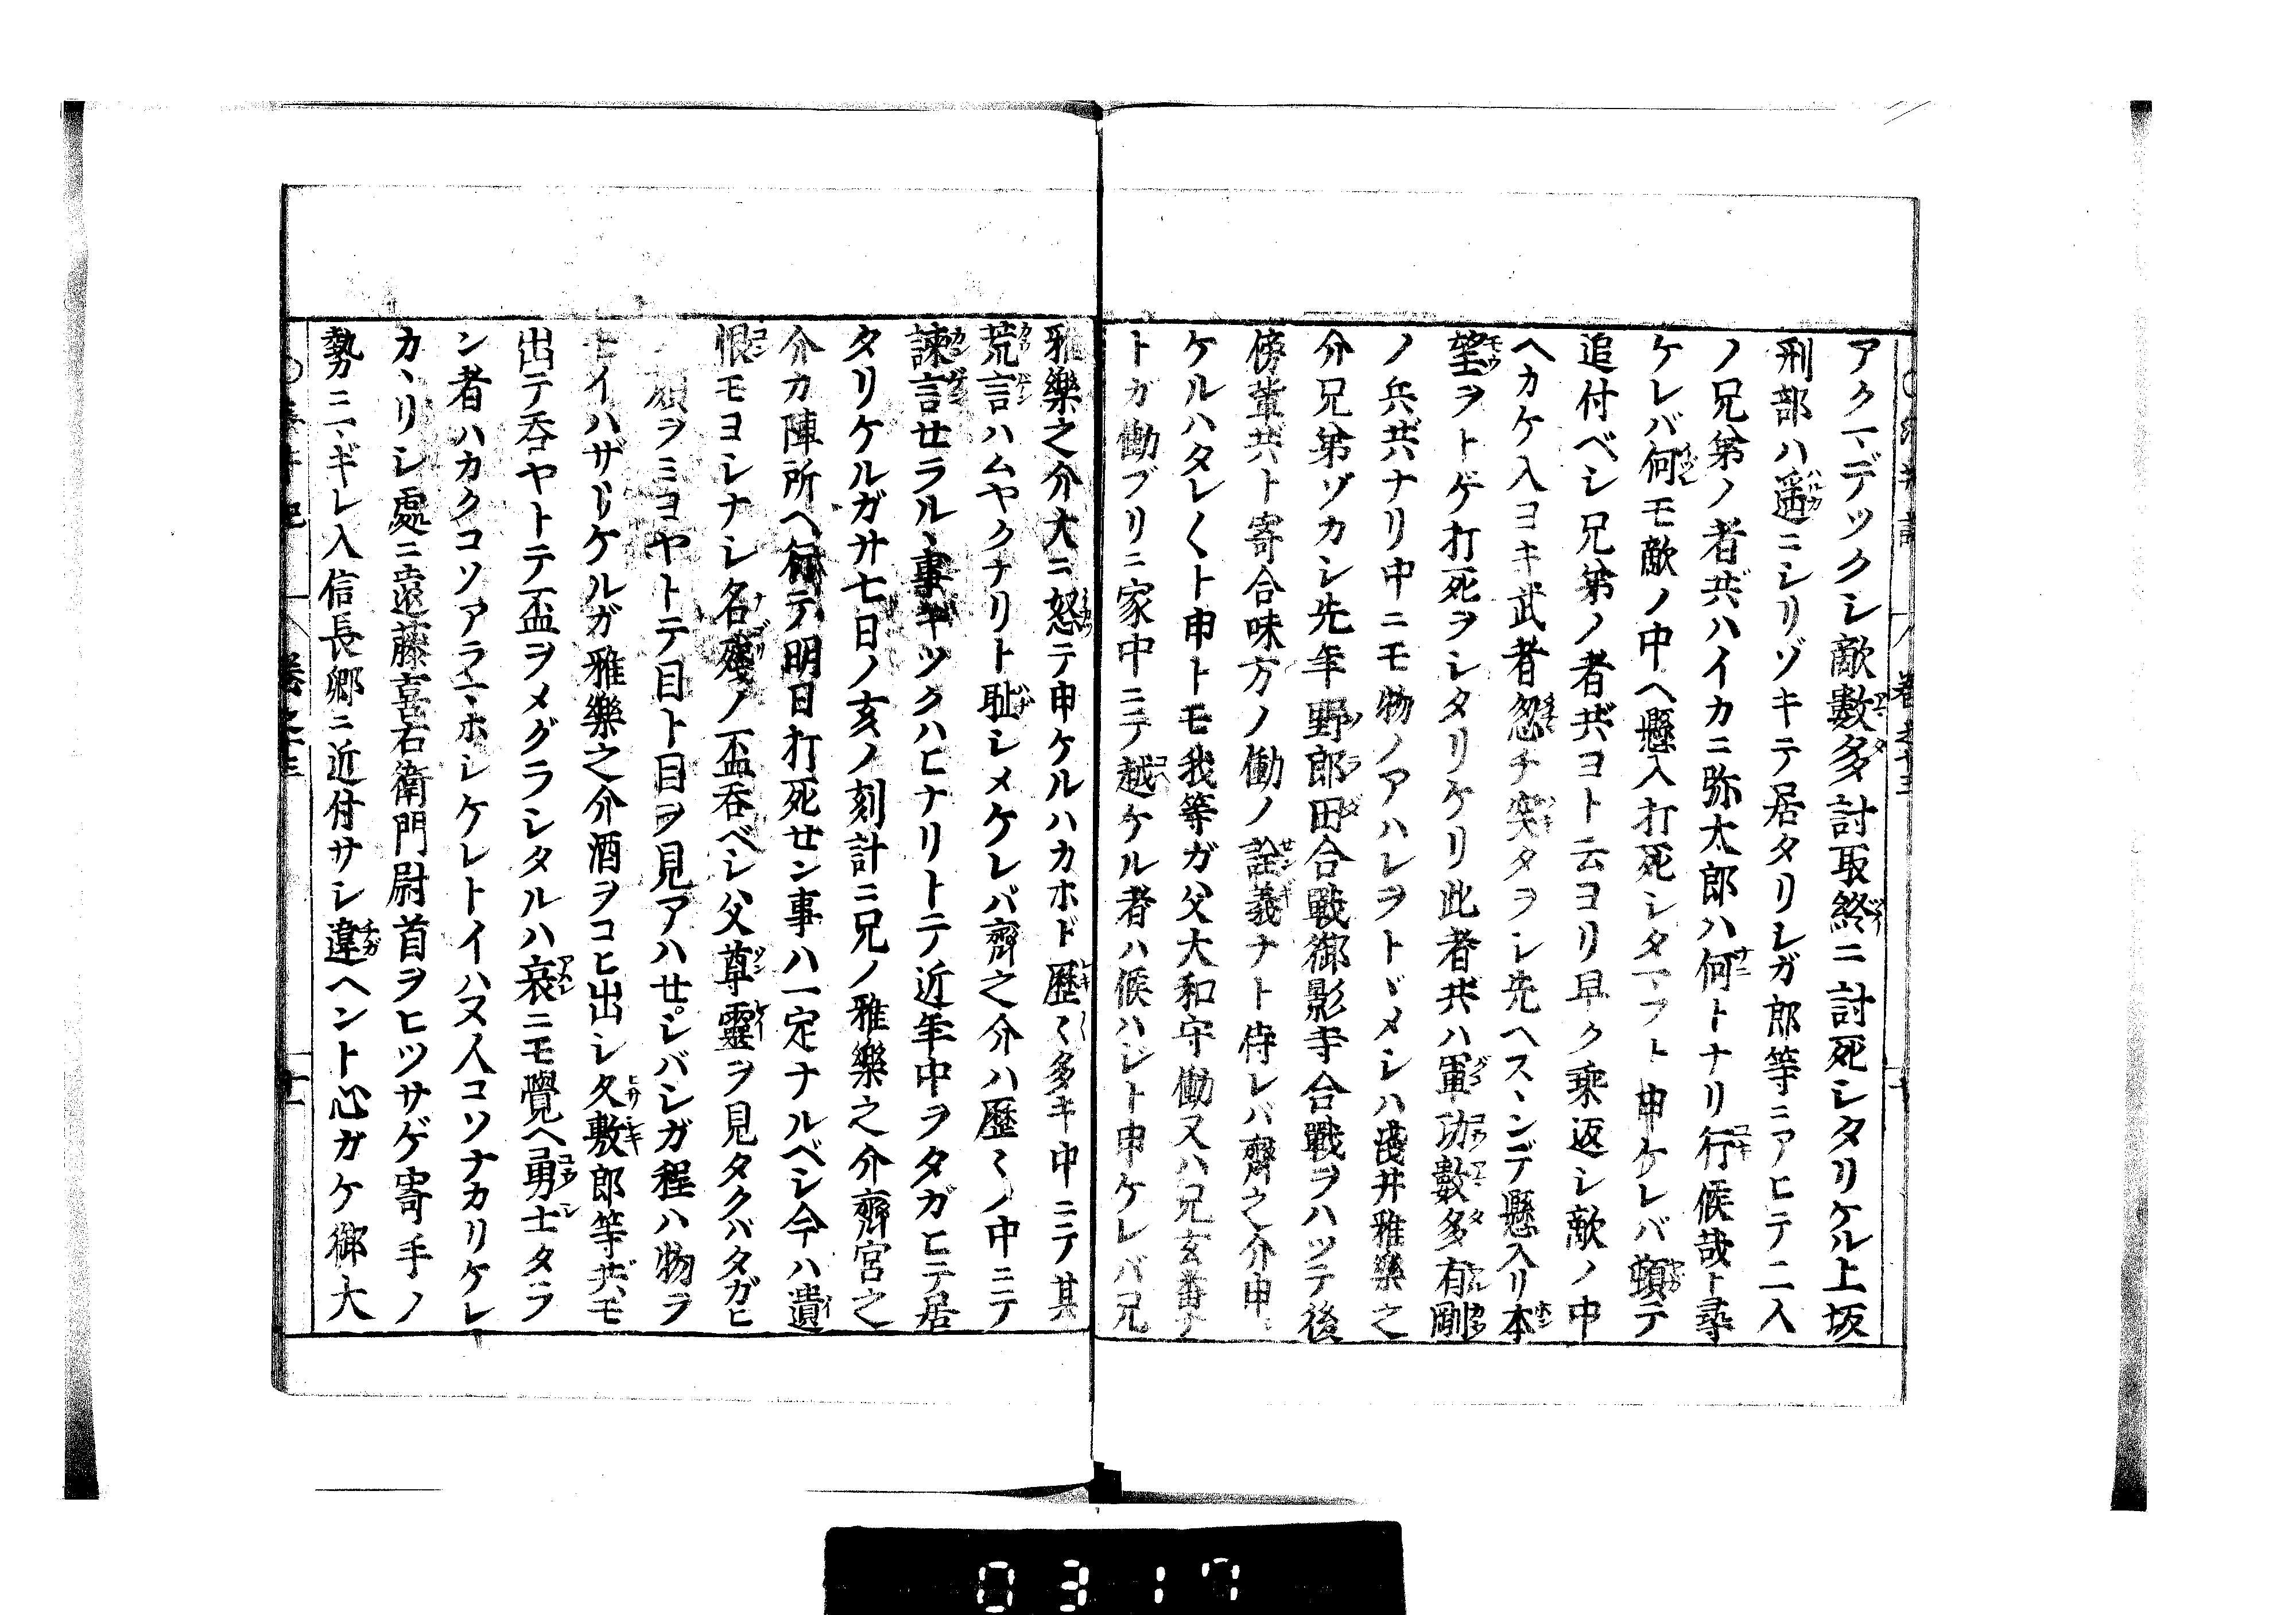 アクマデツクシ敵數多討取終ニ討死シタリケル上坂
刑部ハ遥ニシリゾキテ居タリシガ郎等ニアヒテ二人
ノ兄弟ノ者共ハイカニ弥太郎ハ何トナリ行候哉ト尋
ケレバ何モ敵ノ中ヘ懸入打死シタマフト申ケレバ頓テ
追付ベシ兄弟ノ者共コト云ヨリ早ク乘返シ敵ノ中
ヘカケ入ヨキ武者忽チ突タヲシ先ヘスヽンデ懸入リ本
望ヲトゲ打死ヲシタリケリ此者共ハ軍功數多有剛
ノ兵共ナリ中ニモ物ノアハレヲトヾメシハ淺井雅樂之
介兄弟ゾカシ先年野郎田合戰御影寺合戰ヲハツテ後
傍輩共ト寄合味方ノ働ノ詮義ナト侍レバ齊之介申
ケルハタレ〱ト申トモ我等ガ父大和守働又ハ兄玄蕃ナ
トガ働ブリニ家中ニテ越ケル者ハ候ハジト申ケレバ兄
雅樂之介大ニ怒テ申ケルハカホド歷〻多キ中ニテ其
荒言ハムヤクナリト耻シメケレバ齊之介ハ歷〻ノ中ニテ
諫言せラルヽ事ギツクハヒナリトテ近年中ヲタガヒテ居
タリケルガ廿七日ノ亥ノ刻計ニ兄ノ雅樂之介齊宮之
介カ陣所ヘ行テ明日打死せン事ハ一定ナルベシ今ハ遺
恨モヨシナシ名殘ノ盃呑ベシ父尊靈ヲ見タクバタガヒ
顔ヲミヨヤトテ目ト目ヲ見アハせシバシガ程ハ物ヲ
トイハザリケルガ雅樂之介酒ヲコヒ出シ久敷郎等共モ
出テ呑ヤトテ盃ヲメグラシタルハ哀ニモ覺ヘ勇士タラ
ン者ハカクコソアラマホシケレトイハヌ人コソナカリケレ
カヽリシ處ニ遠藤喜右衛門尉首ヲヒツサゲ寄手ノ
勢カニマギレ入信長郷ニ近付サシ違ヘント心ガケ御大
0317